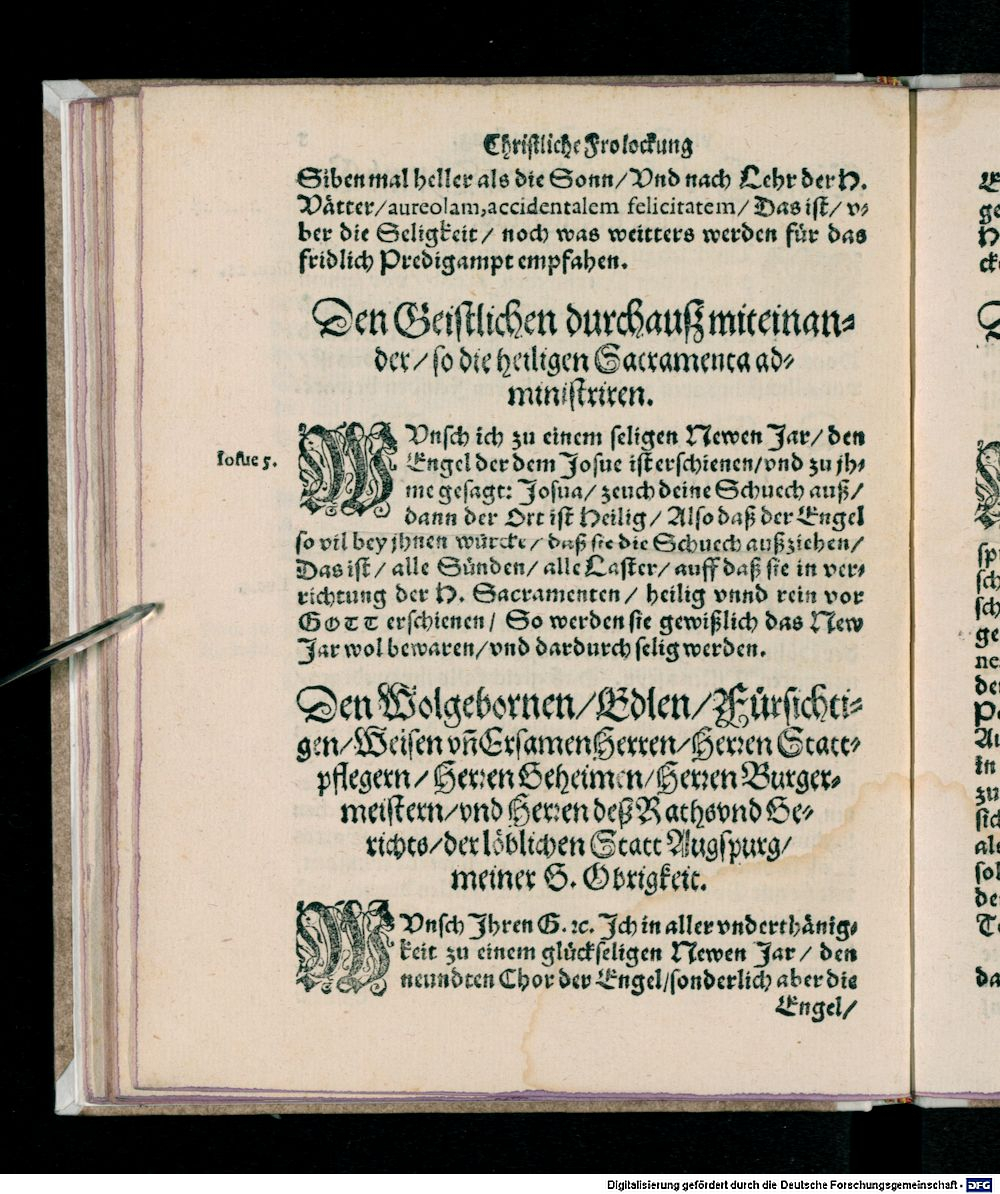 Christliche Frolockung
Siben mal heller als die Sonn/ Vnd nach Lehr der H.
Vätter/ aureolam, accidentalem felicitatem/ Das ist/ v-
ber die Seligkeit/ noch was weitters werden für das
fridlich Predigampt empfahen.
Den Geistlichen durchauß miteinan-
der/ so die heiligen Sacramenta ad-
ministriren.
WVnsch ich zu einem seligen Newen Jar/ den
Iosue 5.
Engel der dem Josue ist erschienen/ vnd zu jh-
me gesagt: Josua/ zeuch deine Schuech auß/
dann der Ort ist Heilig/ Also daß der Engel
so vil bey jhnen würcke/ daß sie die Schuech außziehen/
Das ist/ alle Sünden/ alle Laster/ auff daß sie in ver-
richtung der H. Sacramenten/ heilig vnnd rein vor
GOTT erschienen/ So werden sie gewißlich das New
Jar wol bewaren/ vnd dardurch selig werden.
Den Wolgebornen/ Edlen/ Fürsichti-
gen/ Weisen vñ Ersamen Herren/ Herren Statt-
pflegern/ Herren Geheimen/ Herren Burger-
meistern/ vnd Herren deß Raths vnd Ge-
richts/ der löblichen Statt Augspurg/
meiner G. Obrigkeit.
WVnsch Ihren G. ꝛc. Ich in aller vnderthänig-
keit zu einem glückseligen Newen Jar/ den
neundten Chor der Engel/ sonderlich aber die
Engel/
Digitalisierung gefördert durch die Deutsche Forschungsgemeinschaft - DFG